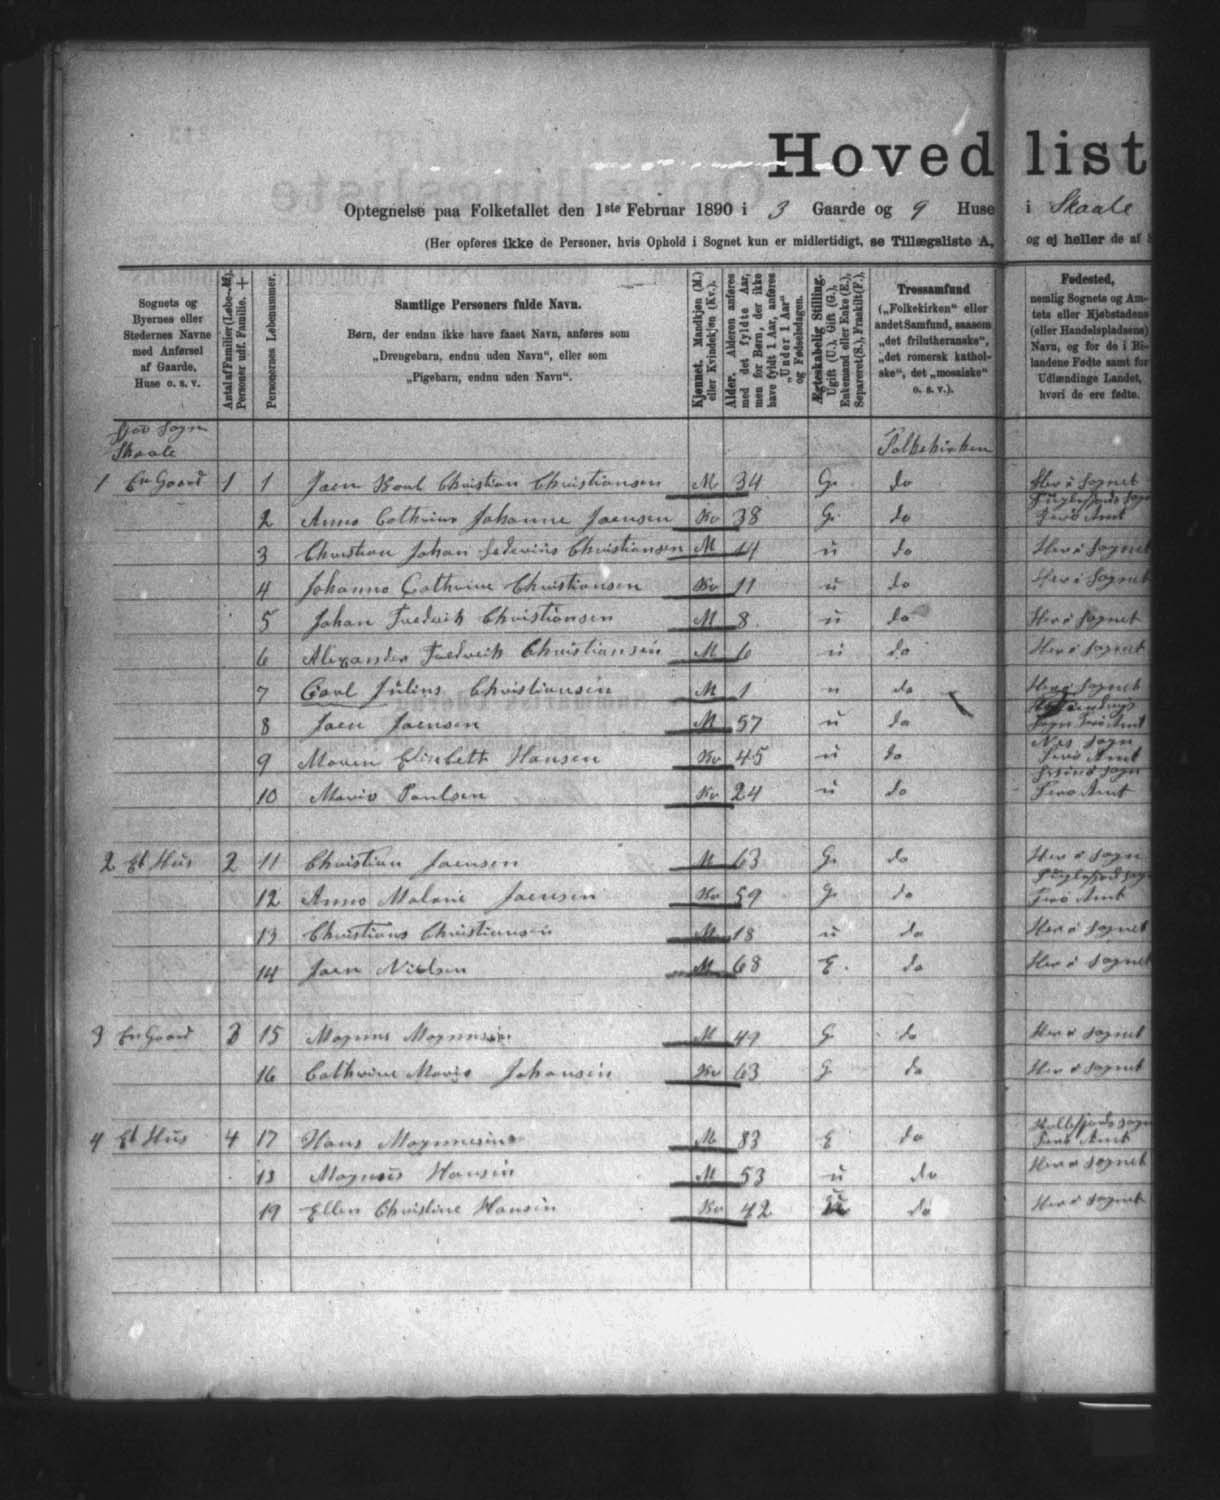 Hovedlist
Optegnelse paa Folketallet den 1ste Februar 1890 i 3 Gaarde og 9 Huse i Skaale
(Her opføres ikke de Personer, hvis Ophold i Sognet kun er midlertidigt, se Tillægsliste A, og ej heller de af
Sognets og Byernes eller Stedernes Navne med Anførsel af Gaarde, Huse o. s. v.
Antal af Familier (Løbe-№). Personer udf. Familie. +
Personernes Løbenummer.
Samtlige Personers fulde Navn.
Børn, der endnu ikke have faaet Navn, anføres som
„Drengebarn, endnu uden Navn“, eller som
„Pigebarn, endnu uden Navn“.
Kjønnet. Mandkjøn (M.) eller Kvindekjøn (Kv.).
Alder. Alderen anføres med det fyldte Aar, men for Børn, der ikke have fyldt 1 Aar, anføres „Under 1 Aar“ og Fødselsdagen.
Ægteskabelig Stilling. Ugift (U.), Gift (G.), Enkemand eller Enke (E.), Separeret (S.), Fraskilt (F.).
Trossamfund
(„Folkekirken“ eller andet Samfund, saasom „det frilutheranske“, „det romersk katholske“, det „mosaiske“ o. s. v.).
Fødested,
nemlig Sognets og Amtets eller Kjøbstadens (eller Handelspladsens) Navn, og for de i Bilandene Fødte samt for Udlændinge Landet, hvori de ere fødte.
Sogn
Skaale Folkekirken
1 En Gaard 1 1 Joen Christian Christiansen M 34 G. do Her i Sognet
2 Anna Cathrine Johanne Joensen Kv 38 G. do Fuglefjords Sogn Færö Amt
3 Christian Johan Christiansen M u do Her i Sognet
4 Johanne Cathrine Christiansen Kv 11 u do Her i Sognet
5 Johan Fredrik Christiansen M 8 u do Her i Sognet
6 Alexander Fredrik Christiansen M 6 u do Her i Sognet
7 Carl Julius Christiansen M 1 u do Her i Sognet
8 Joen Joensen M 57 u do Sogn Færö Amt
9 Maren Elisbeth Hansen Kv 45 u do Nes Sogn Færö Amt
10 Maria Poulsen Kv 24 u do Sogn Færö Amt
2 Et Hus 2 11 Christian Joensen M 63 G. do Her i Sogn
12 Anna Malene Joensen Kv 59 G. do Fuglefjord Sogn Færö Amt
13 Christians Christiansen M 18 u do Her i Sognet
14 Joen Nielsen M 68 E. do Her i Sognet
3 En Gaard 3 15 Magnus Magnussen M 49 G. do Her i Sognet
16 Cathrine Maria Johansen Kv 63 G. do Her i Sognet
4 Et Hus 4 17 Hans Magnussen M 83 E do Kollefjords Sogn Færö Amt
18 Magnus Hansen M 53 u do Her i Sognet
19 Ellen Christine Hansen Kv 42 u do Her i Sognet